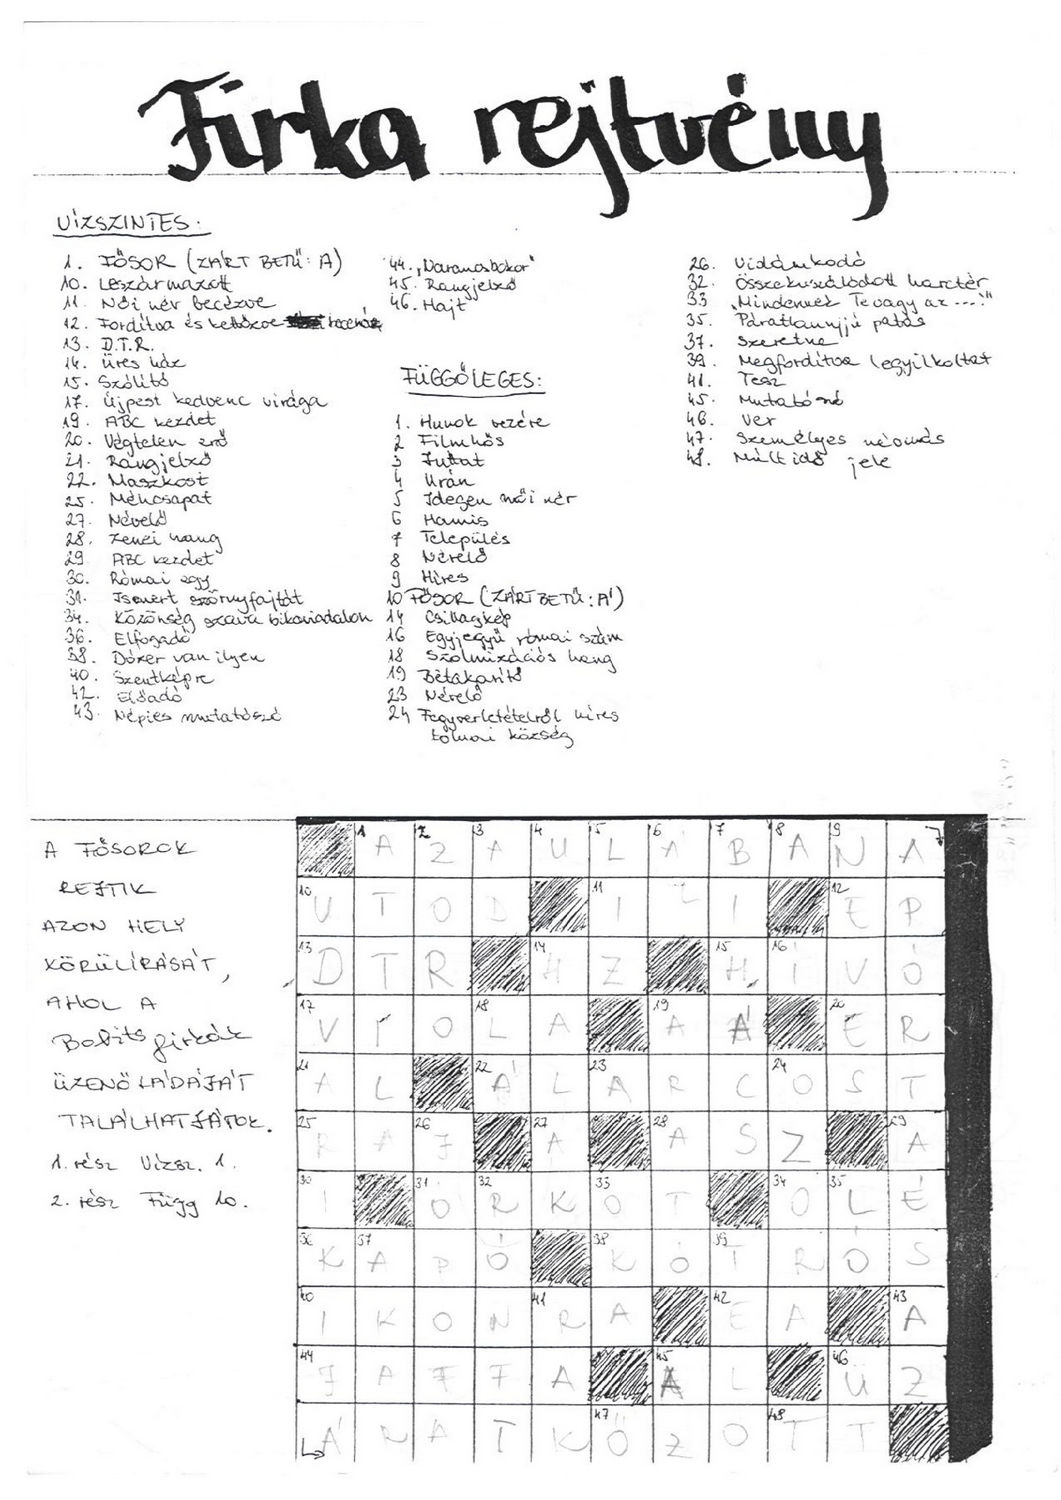 Firka rejtvény
VÍZSZINTES:
1. FŐSOR (ZÁRT BETŰ: A)
10. Leszármazott
11. Női név becézve
12. Fordítva és kettőzve
13. D.T.R.
14. Üres ház
15. Szólító
17. Újpest kedvenc virága
19. ABC kezdet
20. Végtelen erő
21. Rangjelző
22. Maszkost
25. Méhcsapat
27. Névelő
28. Zenei hang
29. ABC kezdet
30. Római egy
31. Ismert szörnyfajtát
34. Közönség szava bikaviadalon
36. Elfogadó
38. Dózer van ilyen
40. Szentképre
42. Előadó
43. Népies mutatószó
44. „Narancsbokor"
45. Rangjelző
46. Hajt
FÜGGŐLEGES:
1. Hunok vezére
2 Filmhős
3 Juttat
4 Urán
5 Idegen női név
6 Hamis
7 Település
8 Névelő
9 Híres
10 FŐSOR (ZÁRT BETŰ: Á)
14 Csillagkép
16 Egyjegyű római szám
18 Szolmizációs hang
19 Bétakarító
23 Névelő
24 Fegyverletételről híres
tolnai község
26. Vidámkodó
32. Összekuszálódott
33 „Mindennek Te vagy az ....!"
35. Páratlanujjú patás
37. Szeretne
39. Megfordítva legyilkoltat
41. Tesz
45. Mutatószó
46. Ver
47. Személyes névmás
48. Múlt idő jele
A FŐSOROK
REJTIK
AZON HELY
KÖRÜLÍRÁSÁT,
AHOL A
Babits firkák
ÜZENŐLÁDÁJÁT
TALÁLHATJÁTOK.
1. rész Vízsz. 1.
2. rész Függ 10.
1 A 2 Z 3 A 4 U 5 L 6 Á 7 B 8 A 9 N A
10 U T O D 11 I L I 12 E P
13 D T R 14 H Z 15 H 16 Í V Ó
17 V I O 18 L A 19 A Á 20 E R
21 A L 22 Á L 23 A R C 24 O S T
25 R A 26 J 27 A 28 A S Z 29 A
30 I 31 O 32 R K 33 O T 34 O 35 L É
36 K 37 A P Ó 38 K Ó 39 T R Ó S
40 I K O N 41 R A 42 E A 43 A
44 J A F F A 45 A L 46 Ű Z
Á R A T K 47 Ő Z O 48 T T